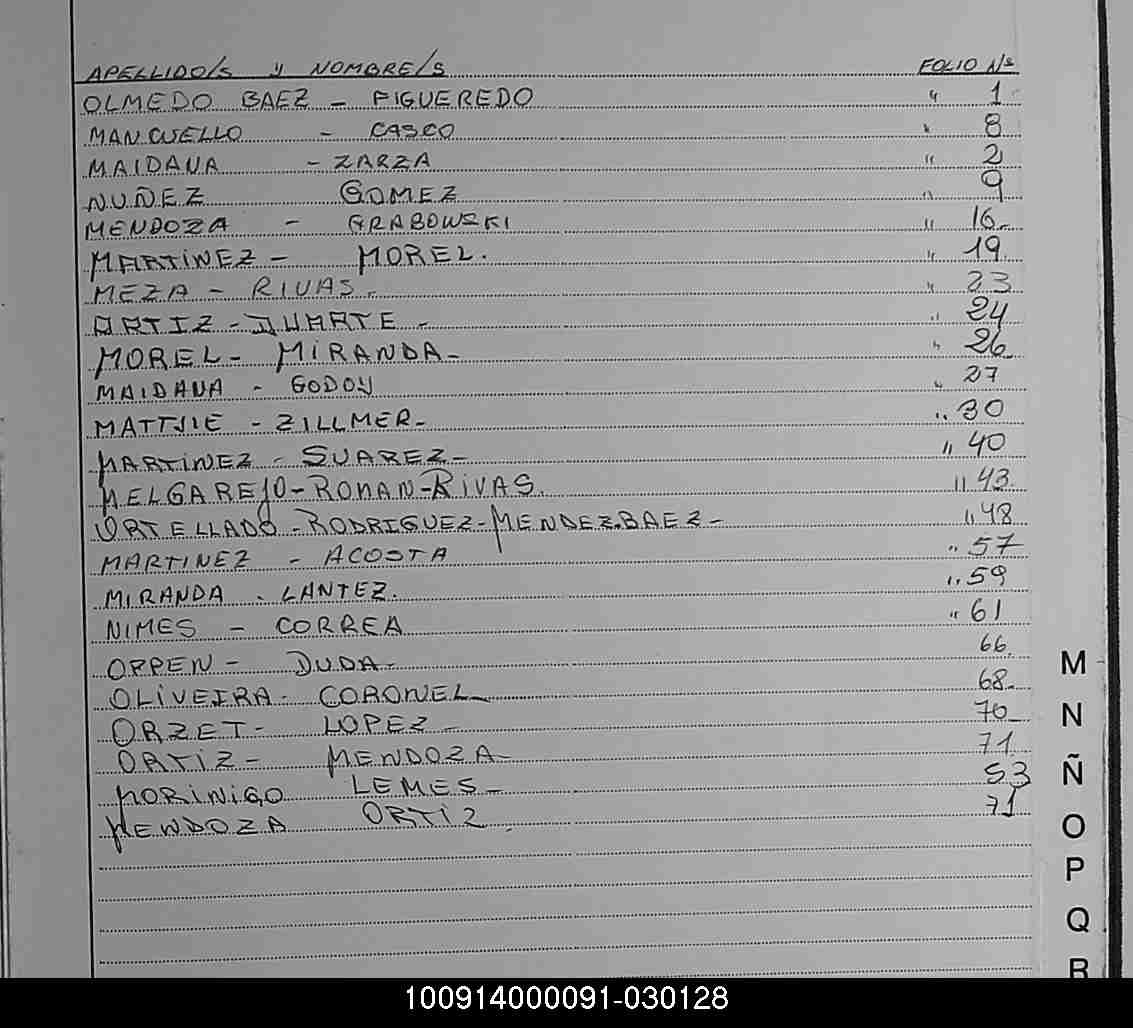 APELLIDO/S y NOMBRE/S FOLIO Nº
OLMEDO BAEZ - FIGUEREDO " 1
MANCUELLO - CASCO " 8
MAIDANA - ZARZA " 2
NUÑEZ GOMEZ " 9
MENDOZA - GRABOWSKI " 16-
MARTINEZ - MOREL. " 19.
MEZA - RIVAS. " 23
ORTIZ - DUARTE - " 24
MOREL - MIRANDA - " 26
MAIDANA - GODOY " 27
MATTJIE - ZILLMER - " 30
MARTINEZ - SUAREZ - " 40
MELGAREJO - ROMAN - RIVAS. " 43.
ORTELLADO - RODRIGUEZ - MENDEZ BAEZ - " 48
MARTINEZ - ACOSTA " 57
MIRANDA - LANTEZ. " 59
NIMES - CORREA " 61
OPPEN - DUDA - 66.
OLIVEIRA - CORONEL - 68-
ORZET - LOPEZ - 70-
ORTIZ - MENDOZA - 71
MORINIGO LEMES - 53
MENDOZA ORTIZ. 71
M
N
Ñ
O
P
Q
R
100914000091-030128